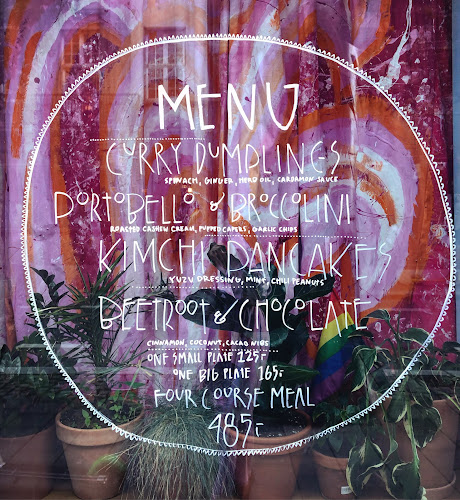 MENU
CURRY DUMPLINGS
SPINACH, GINGER, HERB OIL, CARDAMON SAUCE
PORTOBELLO & BROCCOLINI
ROASTED CASHEW CREAM, PUFFED CAPERS, GARLIC CHIPS
KIMCHI PANCAKES
YUZU DRESSING, MINT, CHILI PEANUTS
BEETROOT & CHOCOLATE
CINNAMON, COCONUT, CACAO NIBS
ONE SMALL PLATE 125:-
ONE BIG PLATE 165:-
FOUR COURSE MEAL
485:-